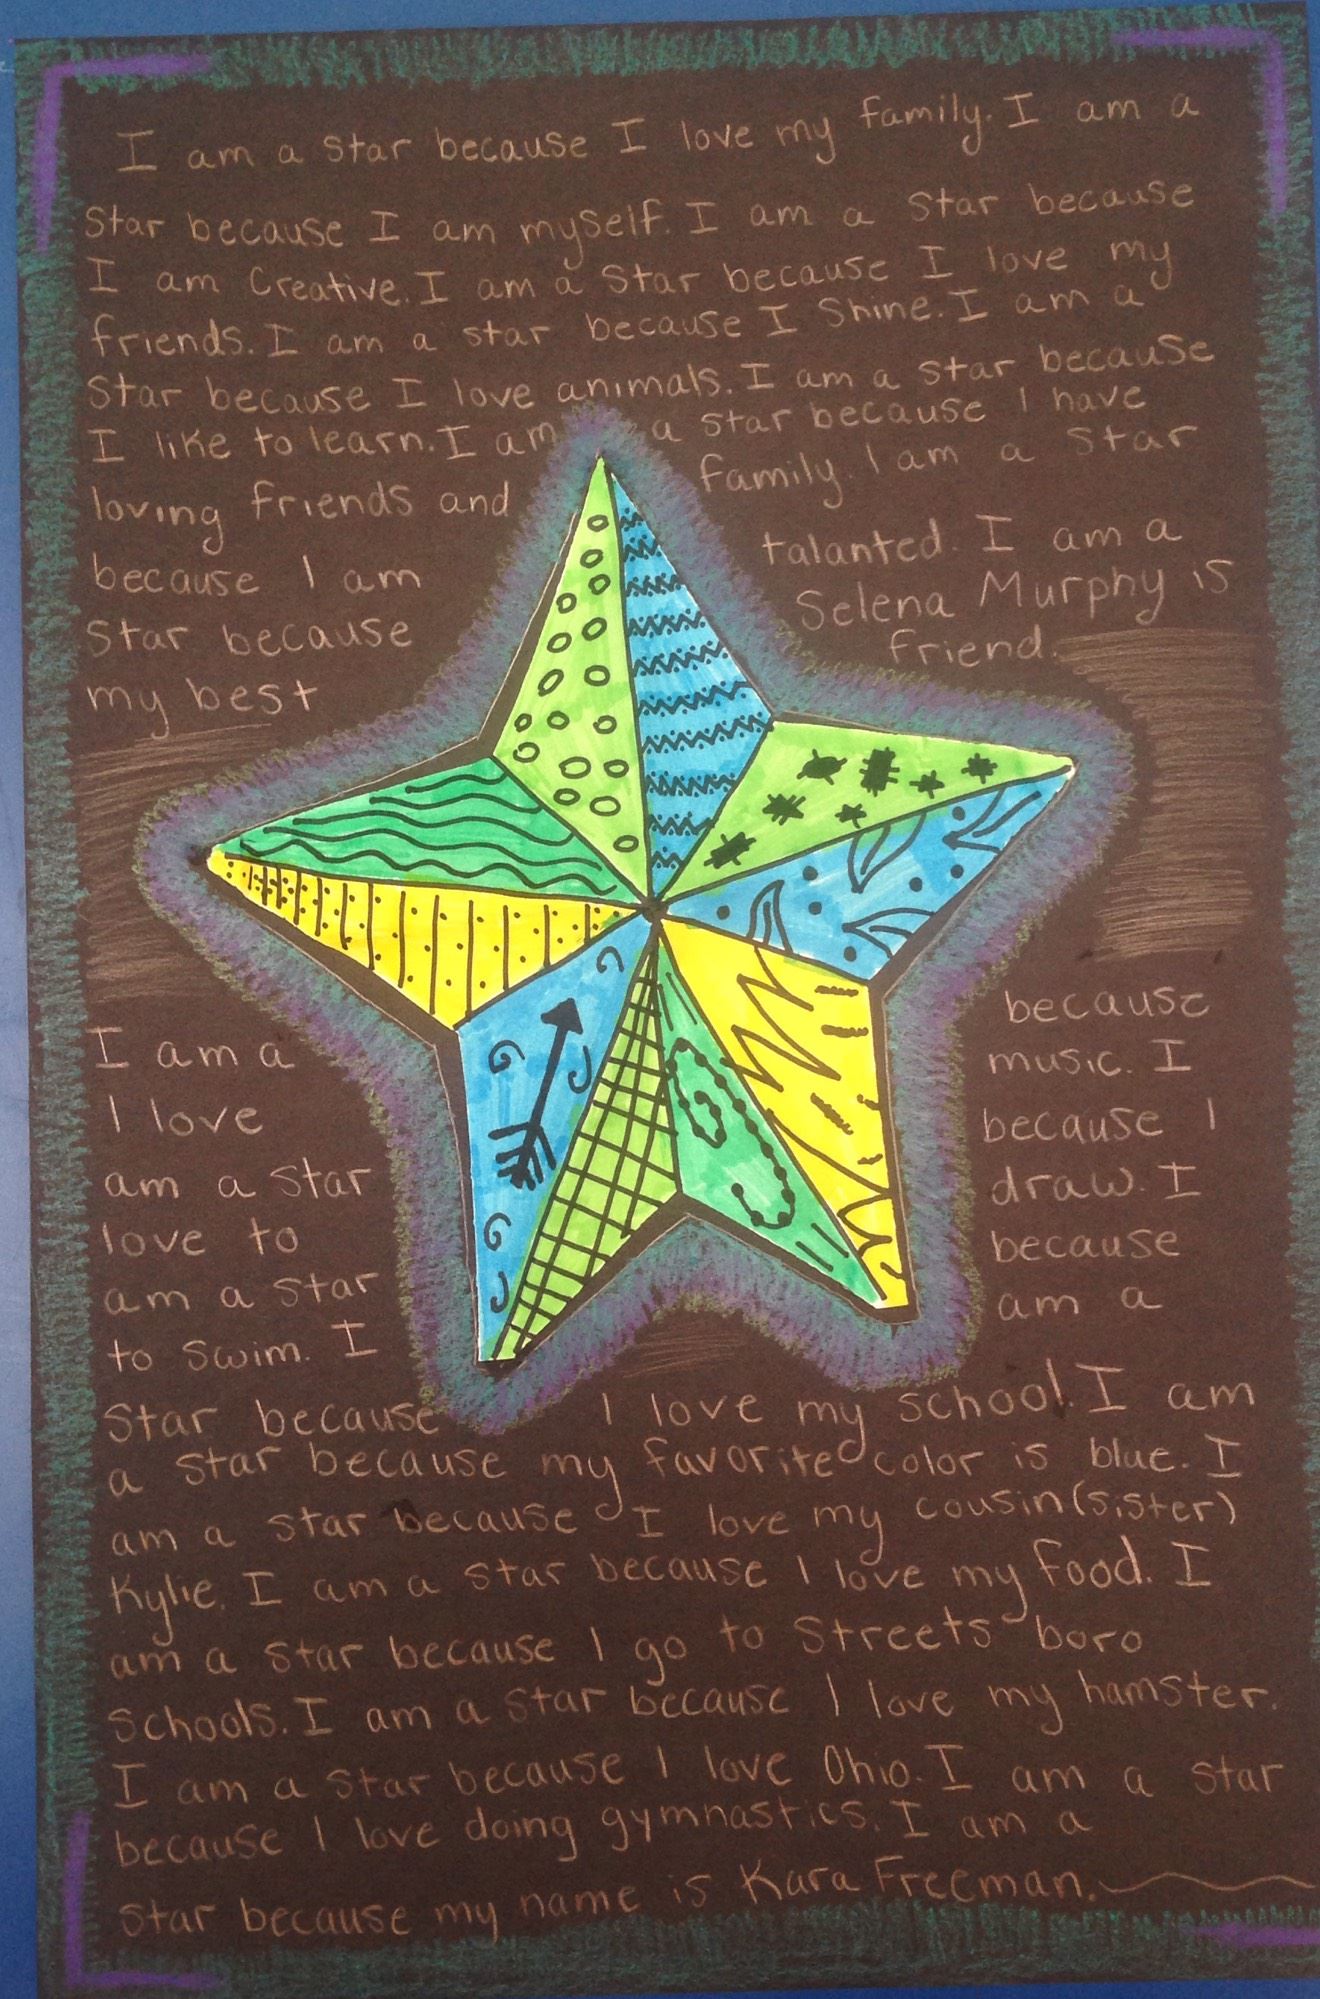 I am a star because I love my family. I am a
star because I am myself. I am a star because
I am creative. I am a star because I love my
friends. I am a star because I shine. I am a
star because I love animals. I am a star because
I like to learn. I am a star because I have
loving friends and family. I am a star
because I am talanted. I am a
star because Selena Murphy is
my best friend.
I am a because
I love music. I
am a star because I
love to draw. I
am a star because
to swim. I am a
star because I love my school. I am
a star because my favorite color is blue. I
am a star because I love my cousin (sister)
Kylie. I am a star because I love my food. I
am a star because I go to Streets boro
Schools. I am a star because I love my hamster.
I am a star because I love Ohio. I am a star
because I love doing gymnastics. I am a
star because my name is Kara Freeman.